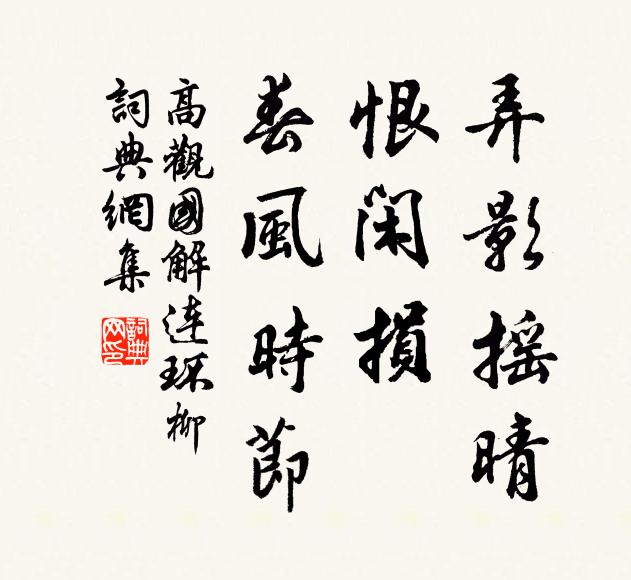 弄影摇晴
恨閑損
春風時節
高觀國解連环柳
詞典網集
詞典
网印